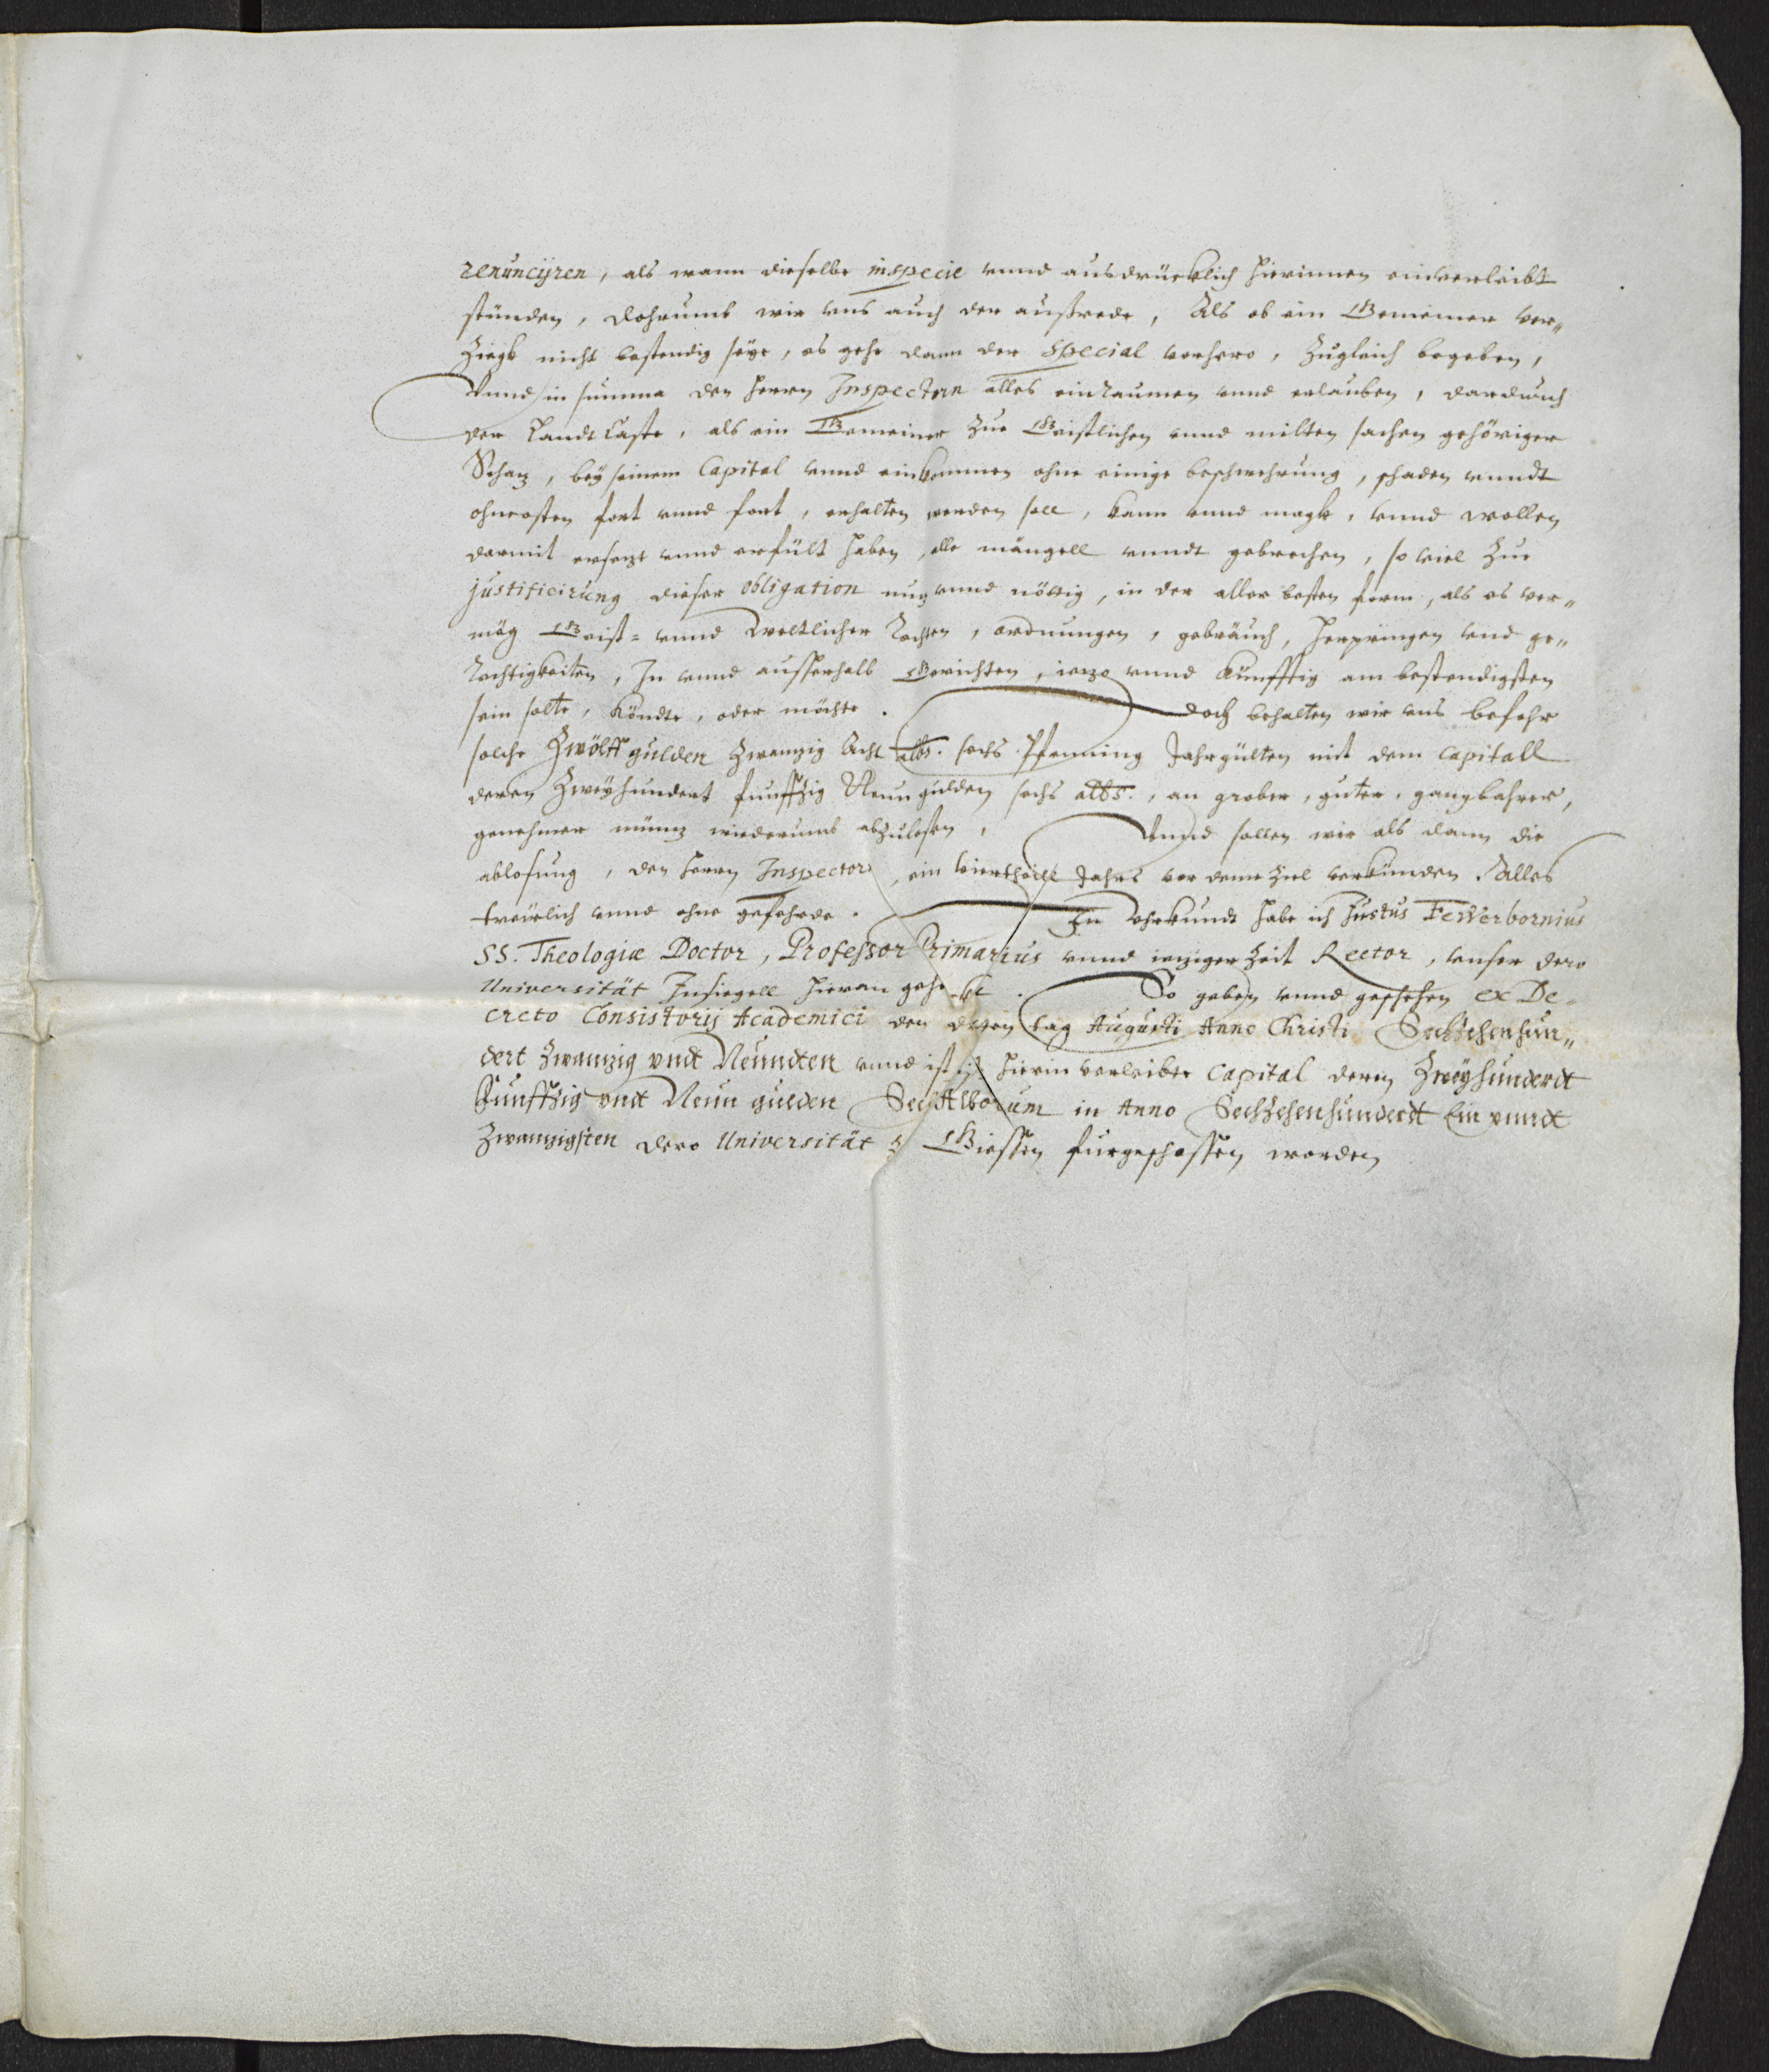 renuncijren, als wann dieselbe inspecie vnnd ausdrücklich hierinnen einverleibt
stünden, dohrumb wir vns auch der außrede, Als ob ein Gemeiner ver„
Ziegk nicht bestendig seye, es gehe dann der Special vorhero, Zugleich begeben,
Vnnd in summa den Herrn Inspectorn alles einraumen vnnd erlauben, dardurch
der Landt Caste, als ein Gemeiner Zur Geistlichen vnnd milten sachen gehöriger
Schaz, bey seinem Capital vnnd einkommen ohne einige beschwehrung, schaden vnndt
ohncosten fort vnnd fort, erhalten werden soll, kann vnnd magk, vnnd wollen
darmit ersezt vnnd erfült haben, alle mängell vnndt gebrechen, so viel Zur
justificirung dieser obligation nuz vnnd nöttig, in der aller besten form, als es ver„
mög Geist= vnnd Weltlicher Rechten, ordnungen, gebräuch, herpringen vnd ge„
Rechtigkeiten, In vnnd ausserhalb Gerichten, iezo vnnd Künfftig am bestendigsten
sein solte, köndte, oder möchte. Doch behalten wir vns befohr
solche Zwölff gulden Zwanzig Acht albs. sechs Pfenning Jahrgülten mit dem Capitall
deren Zweyhundert funffzig Neun gulden sechs albs., an grober, guter, gangbahrer,
genehmer münz wiederumb abzulosen, Vnnd sollen wir als dann die
ablosung, den Herrn Inspectorn, ein Viertheill Jahrs vor deme Ziel verkünden. Alles
trewlich vnnd ohne gefehrde. Zu Vhrkundt habe ich Justus Fewerbornius
SS. Theologiæ Doctor, Professor Primarius vnnd ieziger Zeit Rector, vnser dero
Universität Insiegell hieran gehenckt. So geben vnnd geschehen ex De-
creto Consistorij Academici den tag Augusti Anno Christi Sechzehenhun„
dert Zwanzig vndt Neundten vnnd ist hierin verleibte Capital deren Zweyhundert
Funffzig vndt Neun gulden Sechs Alborum in Anno Sechzehenhundert Ein vnndt
Zwanzigsten dero Universität Z Giessen furgeschossen worden